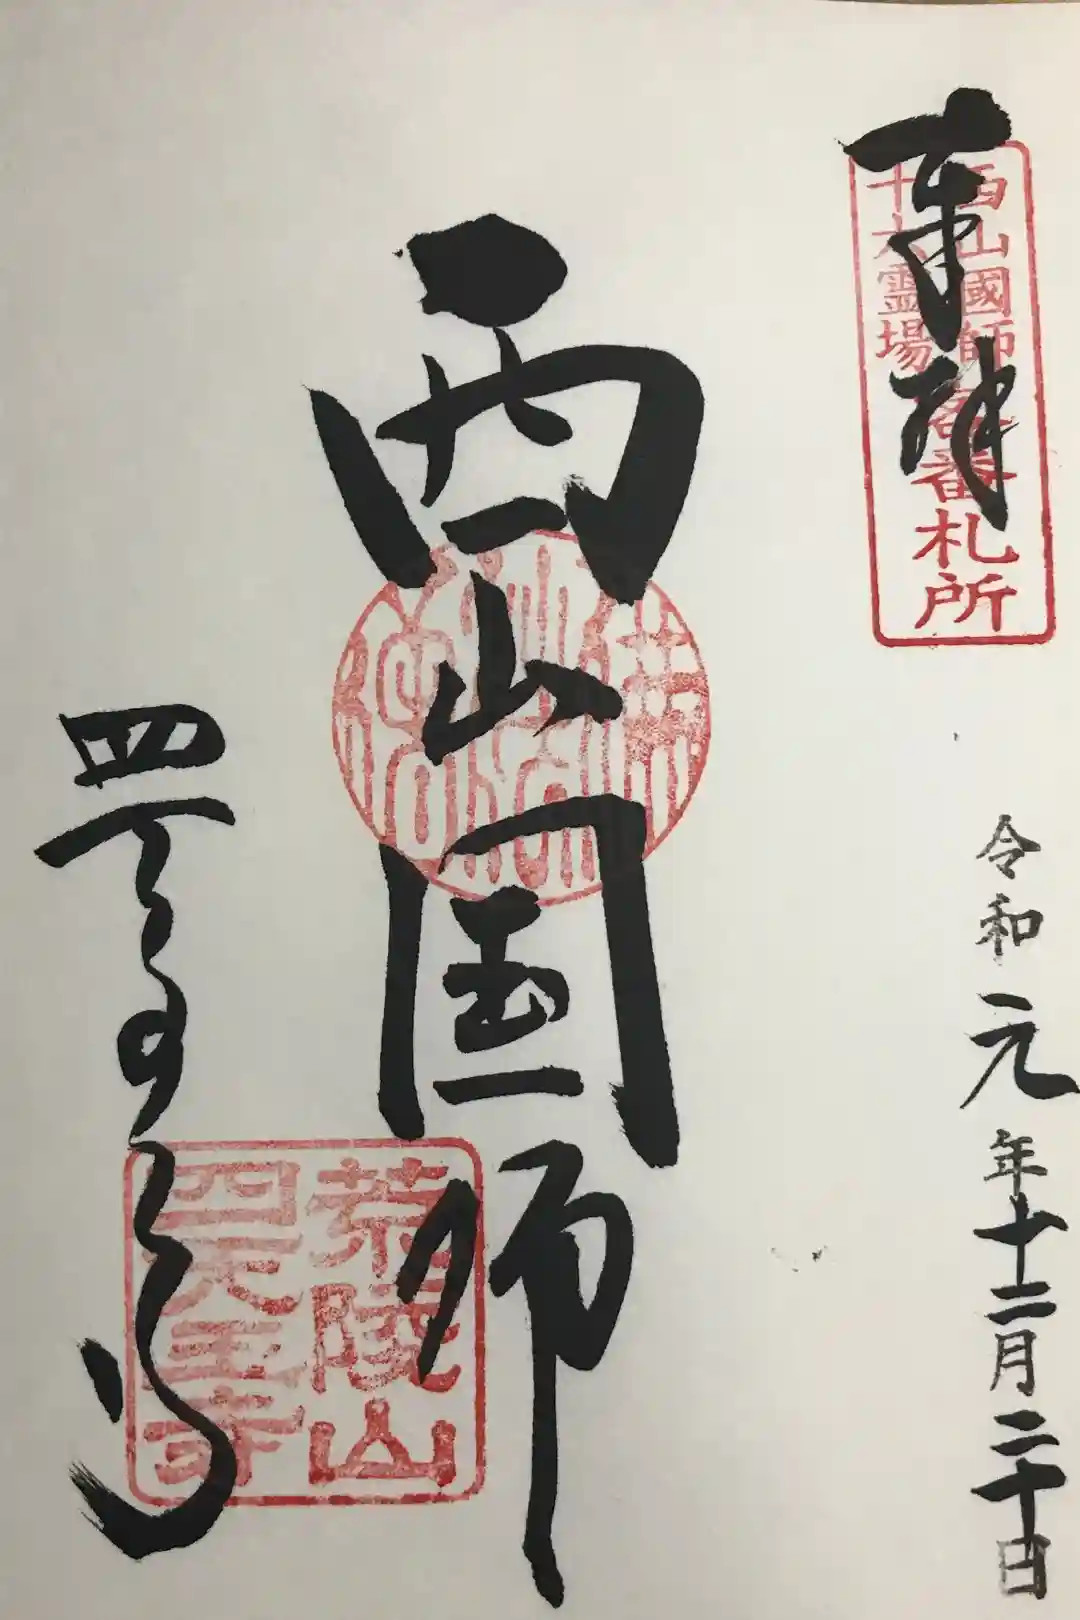 奉拝
西山國師
十六霊場
客番札所
令和元年十二月二十日
西山国師
荒陵山
四天王寺
四天王寺